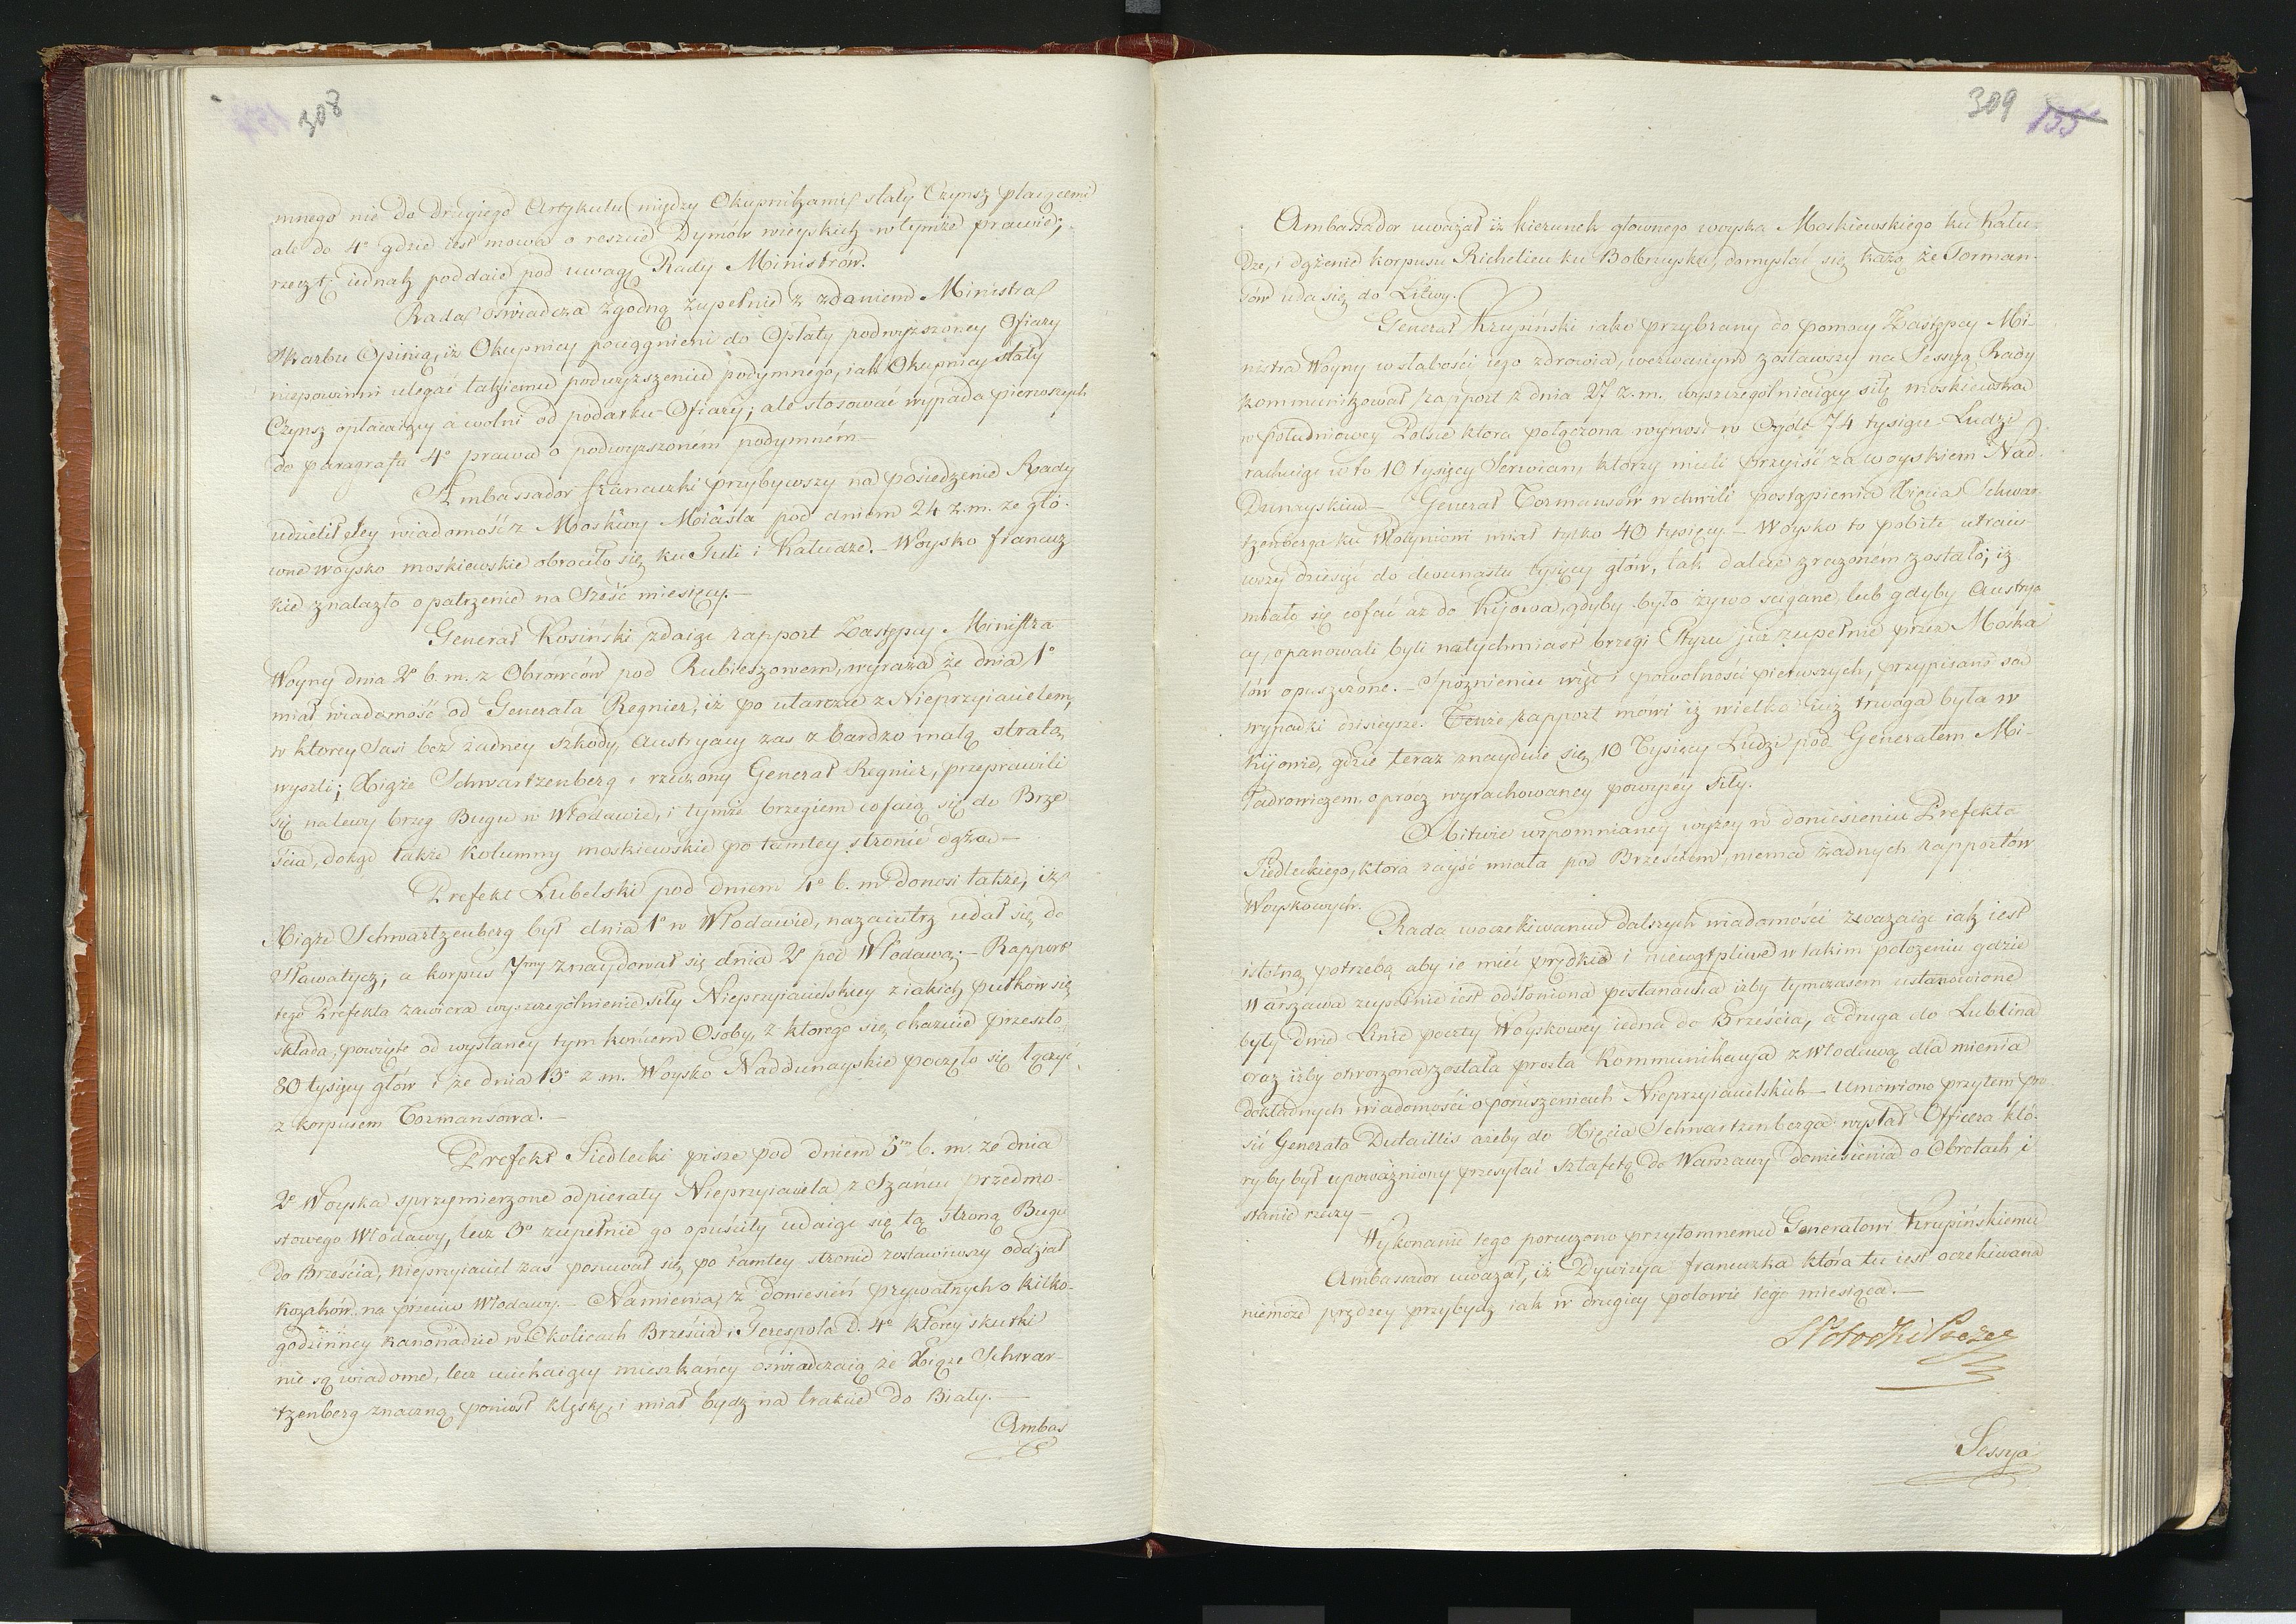 308
mnego nie do drugiego Artykułu (między Okupnikami) stały Czynsz płacącemi
ale do 4º gdzie iest mowa o reszcie Dymów wieyskich w tymże prawie;
rzecz tę iednak poddaie pod uwagę Rady Ministrów.
Rada oświadcza zgodną zupełnie z zdaniem Ministra
Skarbu Opinią, iż Okupnicy pociągnieni do Opłaty podwyższoney Ofiary
niepowinni ulegać takiemu podwyższeniu podymnego, iak Okupnicy stały
Czynsz opłacaiący a wolni od podatku Ofiary; ale stosować wypada pierwszych
do paragrafu 4º prawa o podwyższoném podymném
Ambassador francuzki przybywszy na posiedzenie Rady
udzielił Jey wiadomość z Moskwy Miasta pod dniem 24 z. m. że głó-
wne woysko moskiewskie obrociło się ku Tuli i Kaludze. – Woysko francuz
kie znalazło opatrzenie na Sześć miesięcy. –
Generał Kosiński zdaiąc rapport Zastępcy Ministra
Woyny dnia 2º b. m. z Obrowców pod Rubieszowem, wyraża że dnia 1º
miał wiadomość od Generała Regnier, iż po utarczce z Nieprzyiacielem,
w ktorey Sasi bez żadney szkody, Austryacy zas z bardzo małą stratą
wyszli; Xiąże Schwartzenberg i rzeczony Generał Regnier, przeprawili
się na lewy brzeg Bugu w Włodawie, i tymże brzegiem cofaią się do Brze-
ścia, dokąd także Kolumny moskiewskie po tamtey stronie dążą –
Prefekt Lubelski pod dniem 4º b. m. donosi także, iż
Xiąże Schwartzenberg był dnia 1º w Włodawie, nazaiutrz udał się do
Sławatycz; a korpus 7my znaydował się dnia 2º pod Włodawą; – Rapport
tego Prefekta zawiera wyszczególnienie siły Nieprzyiacielskiey z iakich pułków się
składa; powzięte od wysłaney tym końcem Osoby, z ktorego się okazuie przeszło
80 tysięcy głów i że dnia 13º z. m. Woysko Naddunayskie poczęło się łączyć
z korpusem Tormansowa. –
Prefekt Siedlecki pisze pod dniem 5m b. m. że dnia
2º Woyska sprzymierzone odpierały Nieprzyiaciela z Szańcu przedmo-
stowego Włodawy, lecz 3º zupełnie go opuściły udaiąc się tą stroną Bugu
do Brześcia, nieprzyiaciel zas posuwał się po tamtey stronie zostawiwszy oddział
kozaków na przeciw Włodawy. – Namienia z doniesień prywatnych o kilko-
godzinney kanonadzie w Okolicach Brześcia i Terespola d. 4º ktorey skutki
nie są wiadome, lecz uciekaiący mieszkańcy oświadczaią że Xiąże Schwar-
tzenberg znaczną poniósł klęskę, i miał bydź na trakcie do Biały. –
Ambas
309 155
Ambassador uważał iż kierunek głownego woyska Moskiewskiego ku Kalu-
dze, i dążenie korpusu Richelieu ku Bobruysku, domyślać się każą że Torman-
sów uda się do Litwy.
Generał Krupiński iako przybrany do pomocy Zastępcy Mi-
nistra Woyny w słabości iego zdrowia, wezwanym zostawszy na Sessyą Rady
kommunikował rapport z dnia 27 z. m. wyszczególniaiący siłę moskiewską
w południowey Polsce ktora połączona wynosi w Ogóle 74 tysiące Ludzi
rachuiąc w to 10 tysięcy Serwian, ktorzy mieli przyiść za woyskiem Nad-
Dunayskim – Generał Tormansów w chwili postąpienia Xięcia Schwar-
tzenberga ku Wołyniowi miał tylko 40 tysięcy. – Woysko to pobite utraci-
wszy dziesięć do dwunastu tysięcy głów, tak dalece zrażoném zostało; iż
miało się cofać aż do Kijowa, gdyby było żywo ścigane, lub gdyby Austrya
cy, opanowali byli natychmiast brzegi Styru już zupełnie przez Moska
lów opuszczone. – Spóźnieniu więc i powolności pierwszych, przypisane są
wypadki dzisieysze. Tenże rapport mówi iż wielka już trwoga była w
Kijowie, gdzie teraz znayduie się 10 Tysięcy Ludzi pod Generałem Mi-
ładrowiczem oprócz wyrachowaney powyżey siły.
O bitwie wspomnianey wyżey w doniesieniu Prefekta
Siedleckiego, ktora zayść miała pod Brześciem, niema żadnych rapportów
Woyskowych.
Rada w oczekiwaniu dalszych wiadomości zważaiąc iak iest
istotną potrzebą aby ie mieć prędkie i niewątpliwe w takim położeniu gdzie
Warszawa zupełnie iest odsłoniona postanawia iżby tymczasem ustanowione
były dwie Linie poczty Woyskowey iedna do Brześcia, a druga do Lublina
oraz iżby otworzona została prosta kommunikacya z Włodawą dla mienia
dokładnych wiadomości o poruszeniach Nieprzyiacielskich – Umówiono przytem pro
sić Generała Dutaillis ażeby do Xięcia Schwartzenberga wysłał Officera któ-
ryby był upoważniony przesyłać sztafetą do Warszawy doniesienia o Obrotach i
stanie rzeczy –
Wykonanie tego poruczono przytomnemu Generałowi Krupińskiemu
Ambassador uważał, iż Dywizya francuzka która tu iest oczekiwana
niemoże prędzey przybydź iak w drugiey połowie tego miesiąca. –
Sessya